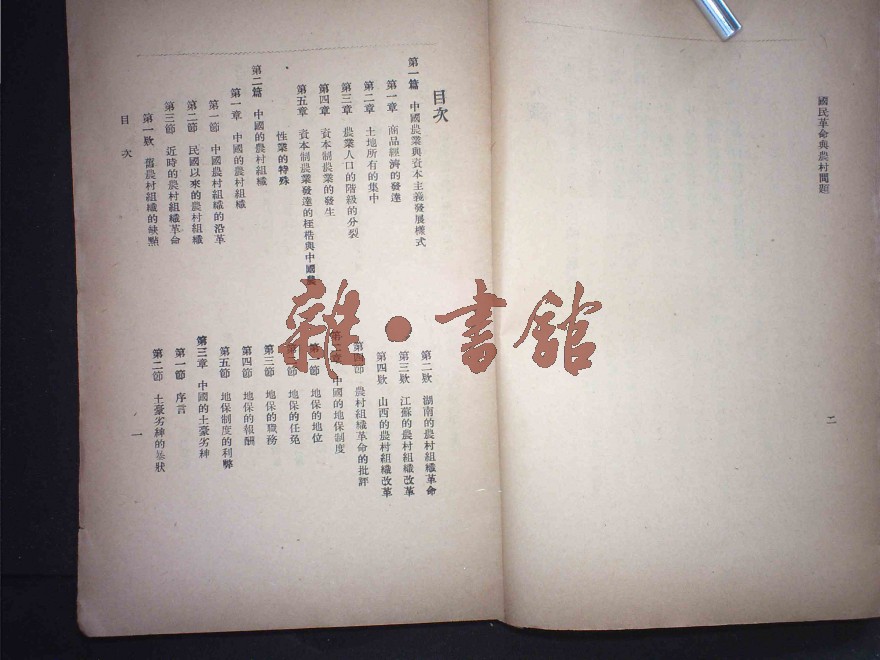 國民革命與農村問題
二
目次
第一篇 中國農業與資本主義發展樣式
第一章 商品經濟的發達
第二章 土地所有的集中
第三章 農業人口的階級的分裂
第四章 資本制農業的發生
第五章 資本制農業發達的桎梏與中國農
性業的特殊
第二篇 中國的農村組織
第一章 中國的農村組織
第一節 中國農村組織的沿革
第二節 民國以來的農村組織
第三節 近時的農村組織革命
第一欵 舊農村組織的缺點
第二欵 湖南的農村組織革命
第三欵 江蘇的農村組織改革
第四欵 山西的農村組織改革
第四節 農村組織革命的批評
第二章 中國的地保制度
第一節 地保的地位
第二節 地保的任免
第三節 地保的職務
第四節 地保的報酬
第五節 地保制度的利弊
第三章 中國的土豪劣紳
第一節 序言
第二節 土豪劣紳的暴狀
目次
一
雜·書館